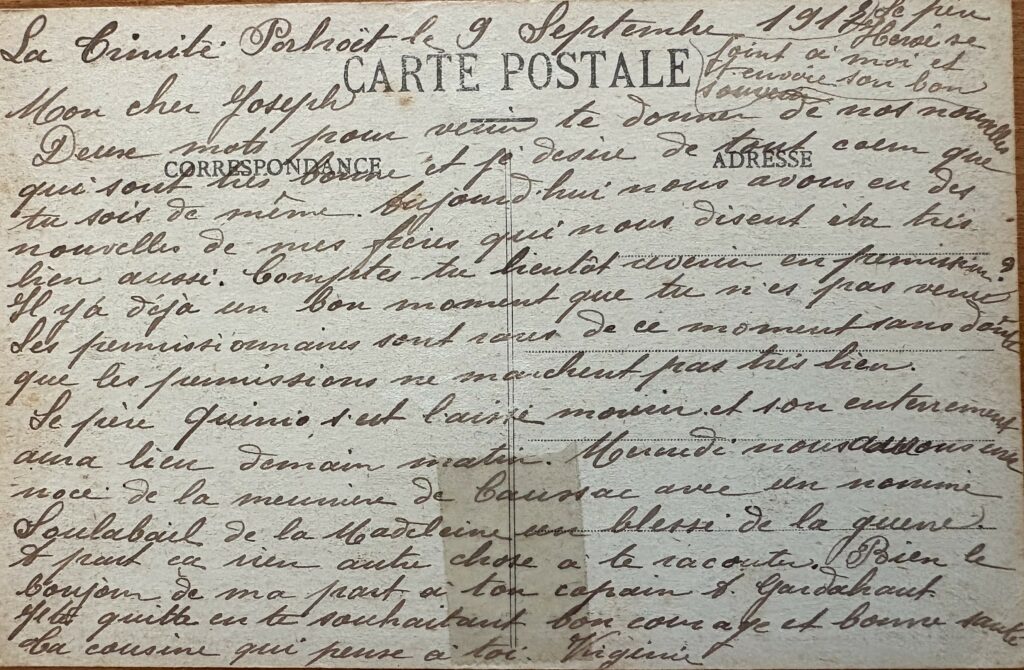 La Trinité Porhoët le 9 Septembre 191
Le peu
Hervé se
joint à moi et
t'envoie son bon
souvenir
CARTE POSTALE
Mon cher Joseph
Deux mots pour venir te donner de nos nouvelles
CORRESPONDANCE
ADRESSE
qui sont très bonne et je désire de tout coeur que
tu sois de même. Aujourd'hui nous avons eu des
nouvelles de mes frères qui nous disent être très
bien aussi. Comptes tu bientôt revenir en permission?
Il y'a déjà un bon moment que tu n'es pas venu
Les permissionnaires sont rares de ce moment sans doute
que les permissions ne marchent pas très bien.
Le père Quinio s'est laissé mourir et son enterrement
aura lieu demain matin. Mercredi nous aurons une
noce de la meunière de avec un nommé
Soulabail de la Madeleine un blessé de la guerre.
A part ça rien autre chose à te raconter. Bien le
bonjour de ma part à ton copain A. Gardahaut
Je te quitte en te souhaitant bon courage et bonne santé
Ta cousine qui pense à toi. Virginie